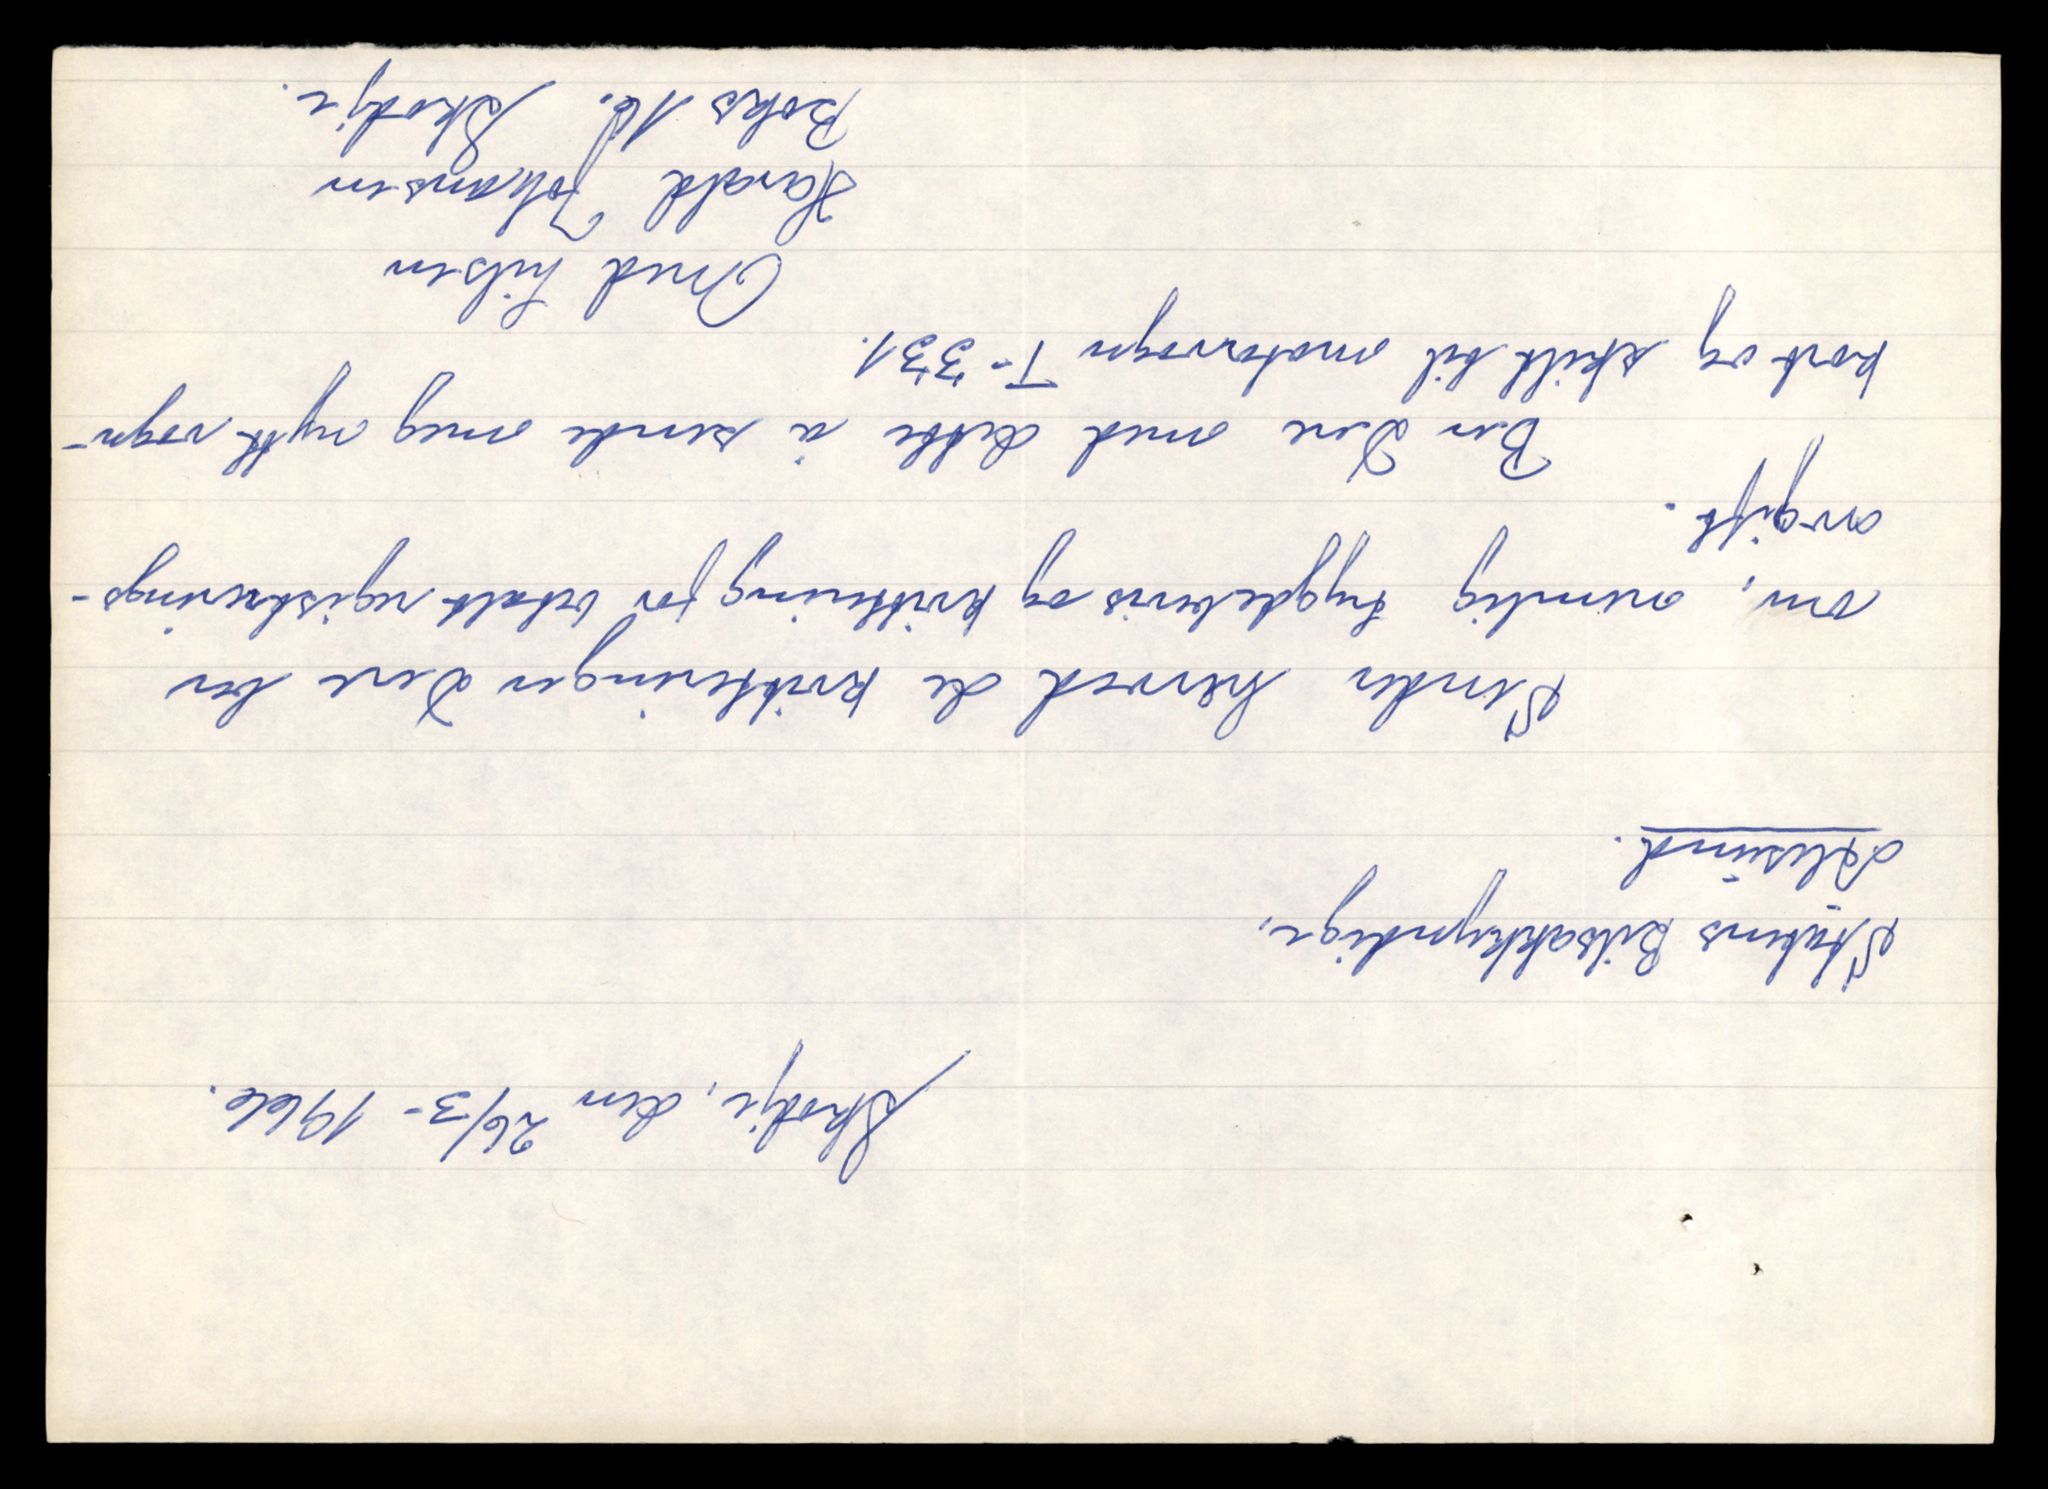 Skodje, den 26/3- 1966.
Statens Bilsakkyndige,
Ålesund.
Sender herved de kvitteringer Dere ber
om, nemlig trygdebevis og kvittering for betalt registrerings-
avgift.
Ber Dere med dette å sende meg nytt vogn-
kort og skilt til motorvogn T-331.
Med hilsen
Harald Johansen
Boks 16. Skodje.